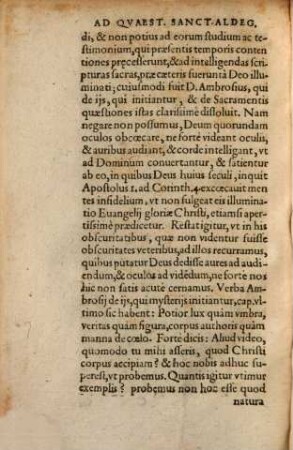 AD QVAEST. SANCT. ALDEG.
di, & non potius ad eorum studium ac te-
stimonium, qui præsentis temporis conten
tiones præcesserunt, & ad intelligendas scri
pturas sacras, præ cæteris fuerunt à Deo illu
minati; cuiusmodi fuit D. Ambrosius, qui
de ijs, qui initiantur, & de Sacramentis
quæstiones istas clarissimè dissoluit. Nam
negare non possumus, Deum quorundam
oculos obcœcare, ne forté videant oculis,
& auribus audiant, & corde intelligant, vt
ad Dominum conuertantur, & sanentur
ab eo, in quibus Deus huius seculi, inquit
Apostolus 1. ad Corinth. 4. excœcauit men
tes infidelium, vt non fulgeat eis illumina
tio Euangelij gloriæ Christi, etiams aper-
tissimè prædicetur. Restat igitur, vt in his
obscuritatibus, quæ non videntur fuisse
obscuritates veteribus, ad illos recurramus,
quibus putatur Deus dedisse aures ad audi-
endum, & oculos ad vidēdum, ne forte nos
hic non satis acutè cernamus. Verba Am-
brosij de ijs, qui mysterijs initiantur, cap. vl
timo sic habent: Potior lux quàm vmbra,
veritas quàm figura, corpus authoris quàm
manna de cœlo. Forte dicis: Aliud video,
quomodo tu mihi asseris, quod Christi
corpus accipiam? & hoc nobis adhuc su-
perest, vt probemus. Quantis igitur vtimur
exemplis? probemus non hoc esse quod
natura